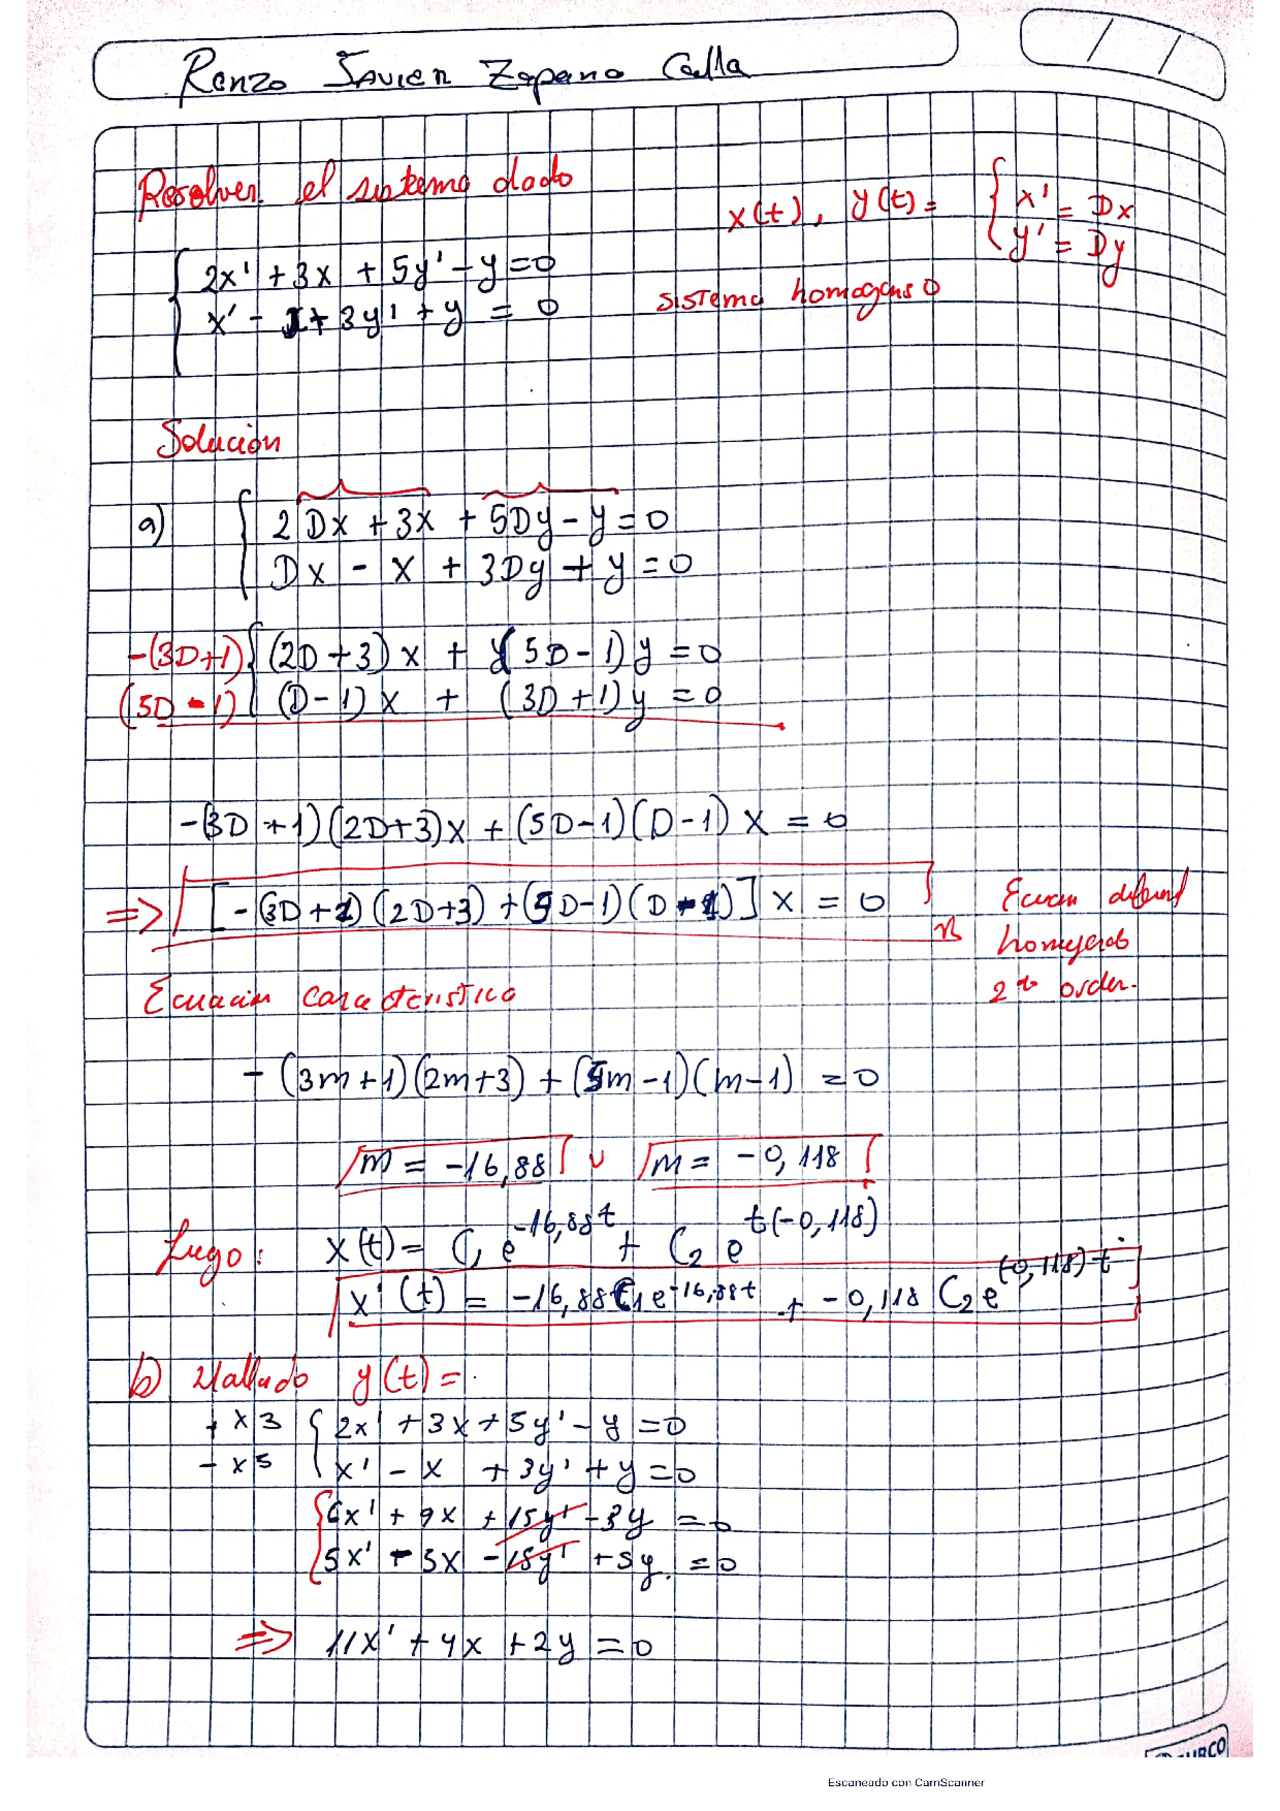 Renzo Javier Zapana Calla
/ /
Resolver el sistema dado
x(t), y(t) = { x' = Dx
y' = Dy
{ 2x' + 3x + 5y' - y = 0
x' - x + 3y' + y = 0
sistema homogeneo
Solución
a) { 2Dx + 3x + 5Dy - y = 0
Dx - x + 3Dy + y = 0
-(3D+1) { (2D+3)x + (5D-1)y = 0
(5D-1) (D-1)x + (3D+1)y = 0
-(3D+1)(2D+3)x + (5D-1)(D-1)x = 0
=> [-(3D+1)(2D+3) + (5D-1)(D-1)]x = 0
homogenea
2do orden.
Ecuación caracteristica
-(3m+1)(2m+3) + (5m-1)(m-1) = 0
m = -16,88 v m = -0,118
Luego: x(t) = C1 e^-16,88t + C2 e^t(-0,118)
x'(t) = -16,88C1e^-16,88t + -0,118 C2e^(-0,118)t
b) Hallado y(t) =
+ x3 { 2x' + 3x + 5y' - y = 0
- x5 x' - x + 3y' + y = 0
{ 6x' + 9x + 15y' - 3y = 0
5x' - 5x - 15y' + 5y = 0
=> 11x' + 4x + 2y = 0
Escaneado con CamScanner